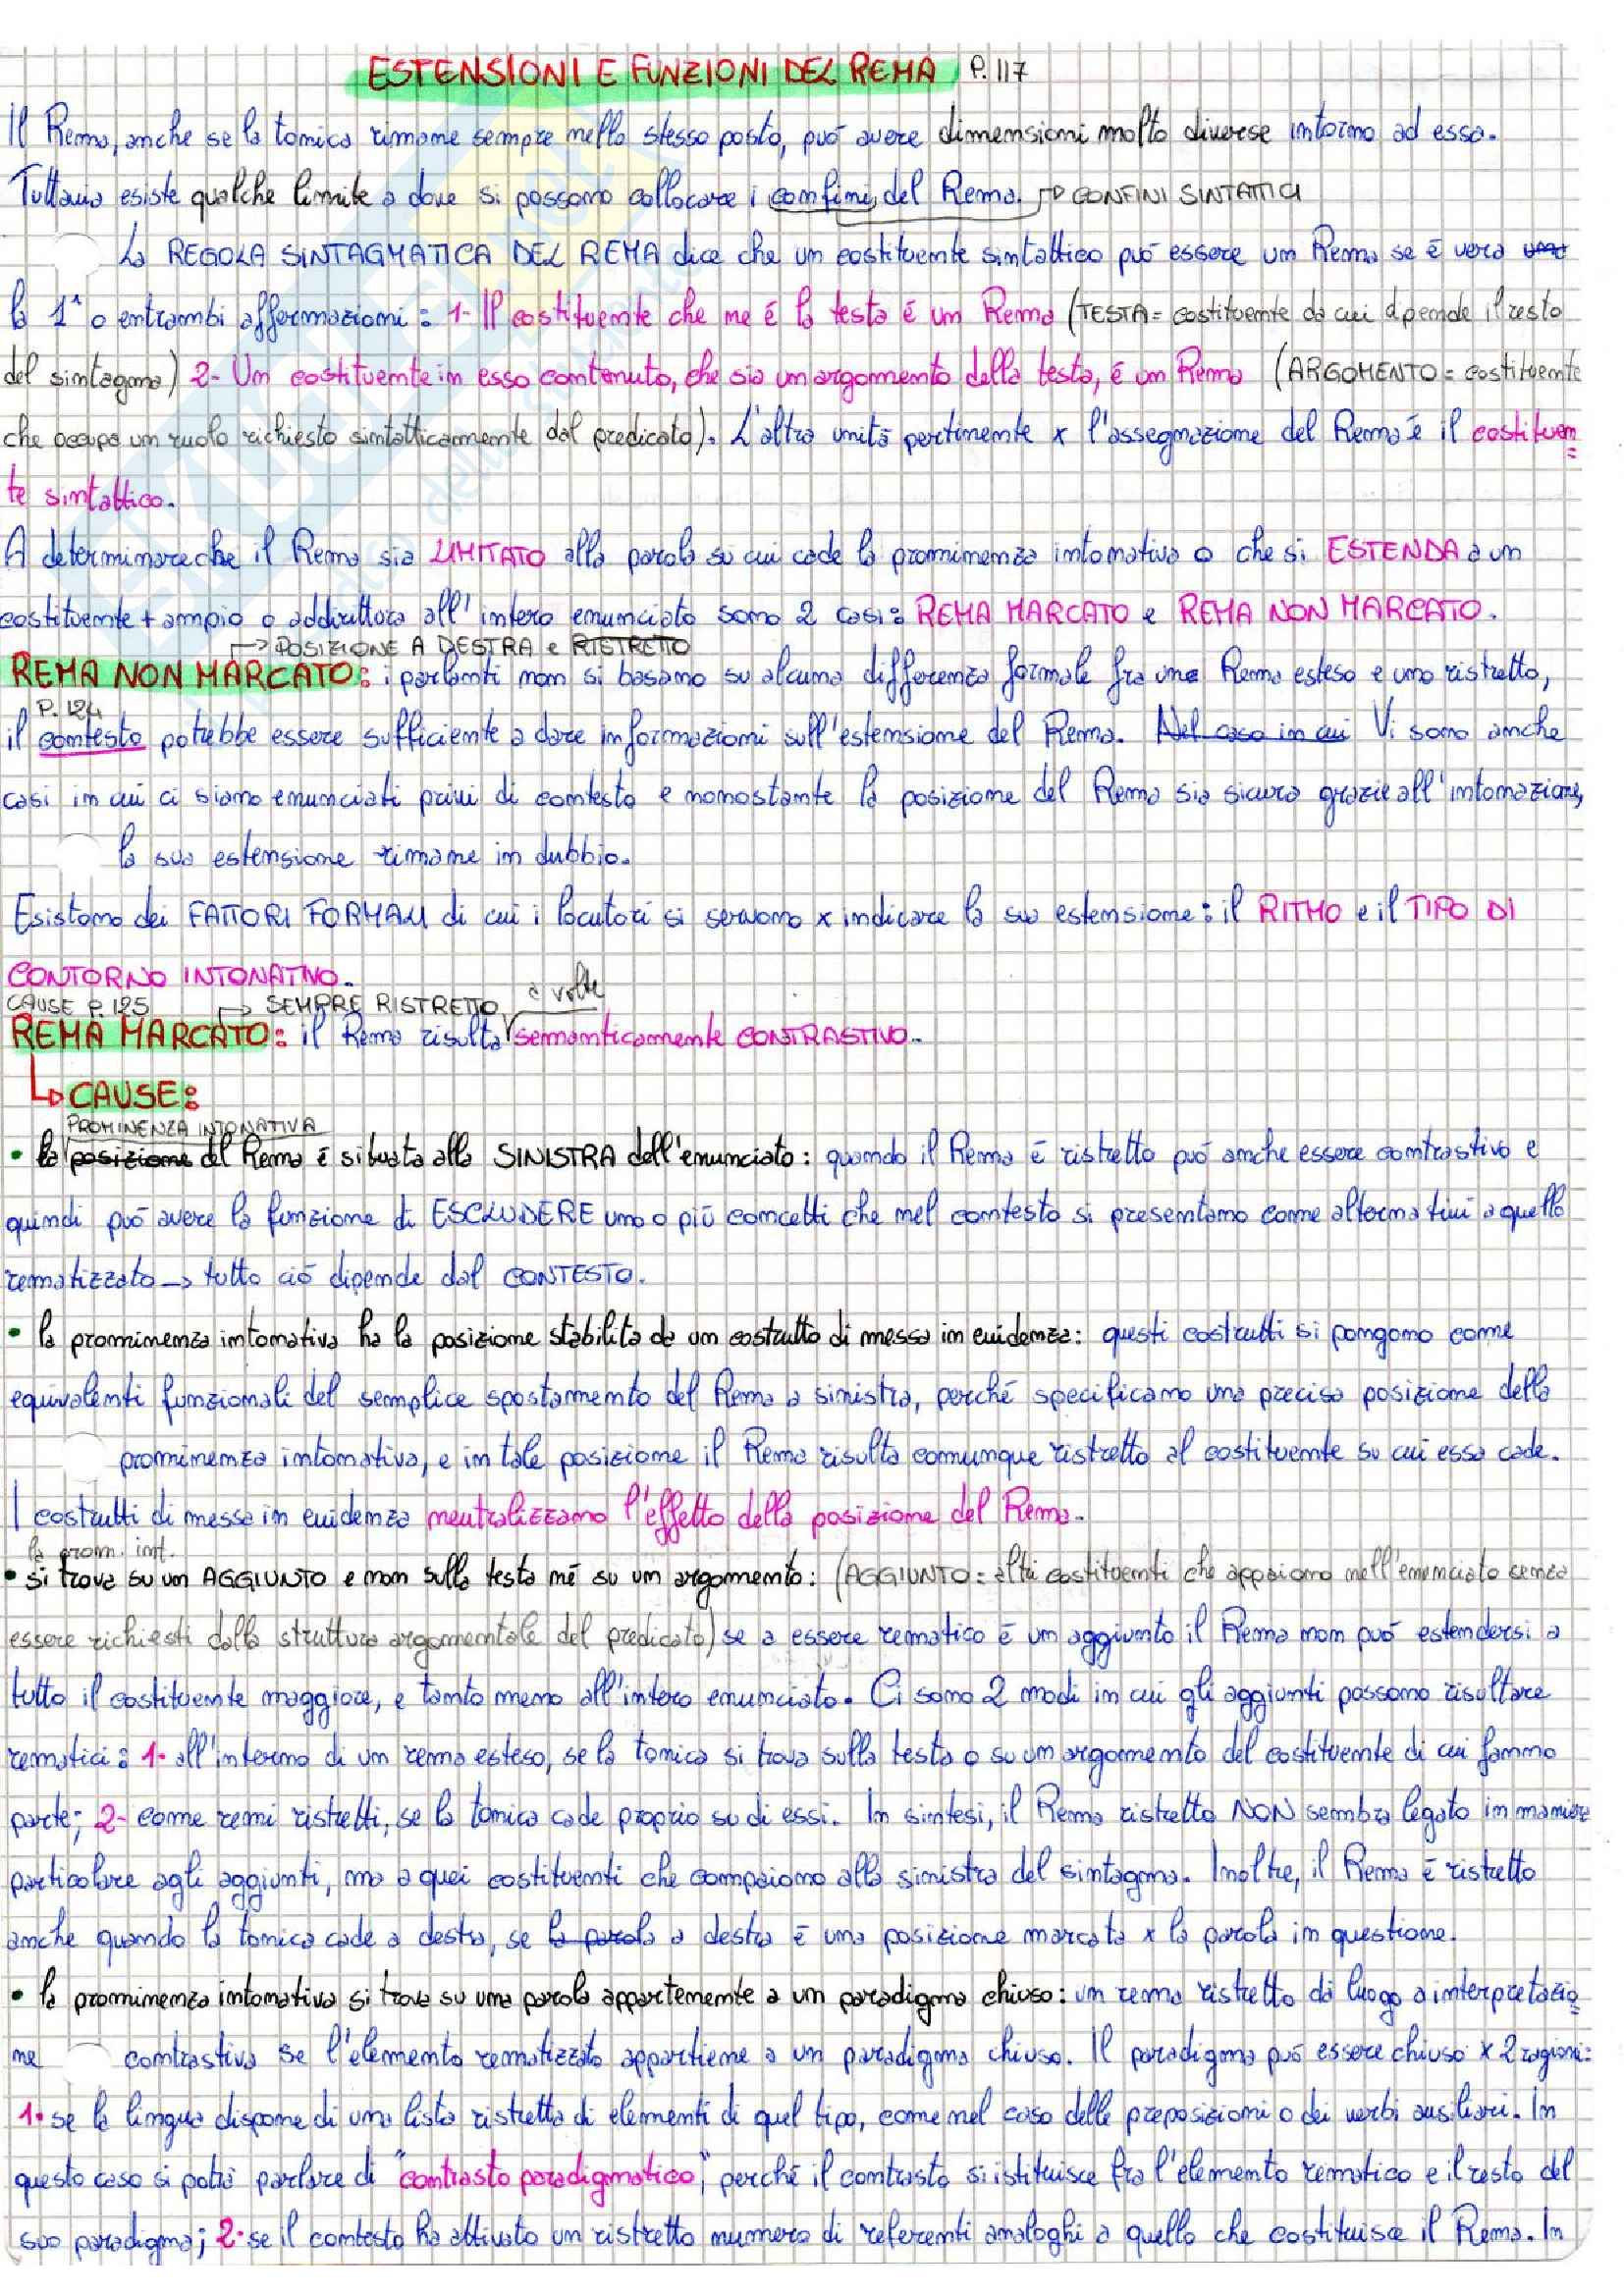 ESTENSIONI E FUNZIONI DEL REMA P. 117
Il Rema, anche se la tonica rimane sempre nello stesso posto, può avere dimensioni molto diverse intorno ad essa.
Tuttavia esiste qualche limite a dove si possono collocare i confini del Rema. → CONFINI SINTATTICI
La REGOLA SINTAGMATICA DEL REMA dice che un costituente sintattico può essere un Rema se è vera
la 1ª o entrambi affermazioni: 1- Il costituente che ne é la testa é un Rema (TESTA = costituente da cui dipende il resto
del sintagma) 2- Un costituente in esso contenuto, che sia un argomento della testa, é un Rema (ARGOMENTO = costituente
che occupa un ruolo richiesto sintatticamente dal predicato). L'altra unità pertinente x l'assegnazione del Rema è il costituen=
te sintattico.
A determinare che il Rema sia LIMITATO alla parola su cui cade la prominenza intonativa o che si ESTENDA a un
costituente + ampio o addirittura all'intero enunciato sono 2 casi: REMA MARCATO e REMA NON MARCATO.
→ POSIZIONE A DESTRA e RISTRETTO
REMA NON MARCATO: i parlanti non si basano su alcuna differenza formale fra una Rema esteso e uno ristretto,
P. 124
il contesto potrebbe essere sufficiente a dare informazioni sull'estensione del Rema. Nel caso in cui Vi sono anche
casi in cui ci siano enunciati privi di contesto e nonostante la posizione del Rema sia sicura grazie all'intonazione,
la sua estensione rimane in dubbio.
Esistono dei FATTORI FORMALI di cui i locutori si servono x indicare la sua estensione: il RITMO e il TIPO DI
CONTORNO INTONATIVO.
CAUSE P. 125 → SEMPRE RISTRETTO a volte
REMA MARCATO: il Rema risulta semanticamente CONTRASTIVO.
↳ CAUSE:
PROMINENZA INTONATIVA
• la posizione del Rema è situata alla SINISTRA dell'enunciato: quando il Rema è ristretto può anche essere contrastivo e
quindi può avere la funzione di ESCLUDERE uno o più concetti che nel contesto si presentano come alternativi a quello
rematizzato → tutto ciò dipende dal CONTESTO.
• la prominenza intonativa ha la posizione stabilita da un costrutto di messa in evidenza: questi costrutti si pongono come
equivalenti funzionali del semplice spostamento del Rema a sinistra, perché specificano una precisa posizione della
prominenza intonativa, e in tale posizione il Rema risulta comunque ristretto al costituente su cui essa cade.
I costrutti di messa in evidenza neutralizzano l'effetto della posizione del Rema.
la prom. int.
• si trova su un AGGIUNTO e non sulla testa né su un argomento: (AGGIUNTO = altri costituenti che appaiono nell'enunciato senza
essere richiesti dalla struttura argomentale del predicato) se a essere rematico è un aggiunto il Rema non può estendersi a
tutto il costituente maggiore, e tanto meno all'intero enunciato. Ci sono 2 modi in cui gli aggiunti possono risultare
rematici: 1- all'interno di un rema esteso, se la tonica si trova sulla testa o su un argomento del costituente di cui fanno
parte; 2- come remi ristretti, se la tonica cade proprio su di essi. In sintesi, il Rema ristretto NON sembra legato in maniera
particolare agli aggiunti, ma a quei costituenti che compaiono alla sinistra del sintagma. Inoltre, il Rema è ristretto
anche quando la tonica cade a destra, se la parola a destra è una posizione marcata x la parola in questione.
• la prominenza intonativa si trova su una parola appartenente a un paradigma chiuso: un rema ristretto dà luogo a interpretazio=
ne contrastiva se l'elemento rematizzato appartiene a un paradigma chiuso. Il paradigma può essere chiuso x 2 ragioni:
1• se la lingua dispone di una lista ristretta di elementi di quel tipo, come nel caso delle preposizioni o dei verbi ausiliari. In
questo caso si potrà parlare di "contrasto paradigmatico", perché il contrasto si istituisce fra l'elemento rematico e il resto del
suo paradigma; 2• se il contesto ha attivato un ristretto numero di referenti analoghi a quello che costituisce il Rema. In